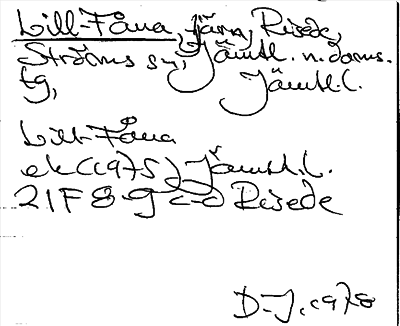 Lill-Fåna, tjärn, Risede,
Ströms sn, Jämtl. n. doms.
tg, Jämtl. l.
Lill-Fåna
ek (1975) Jämtl. l.
21F 8-9 c-d Risede
D-J. 1978